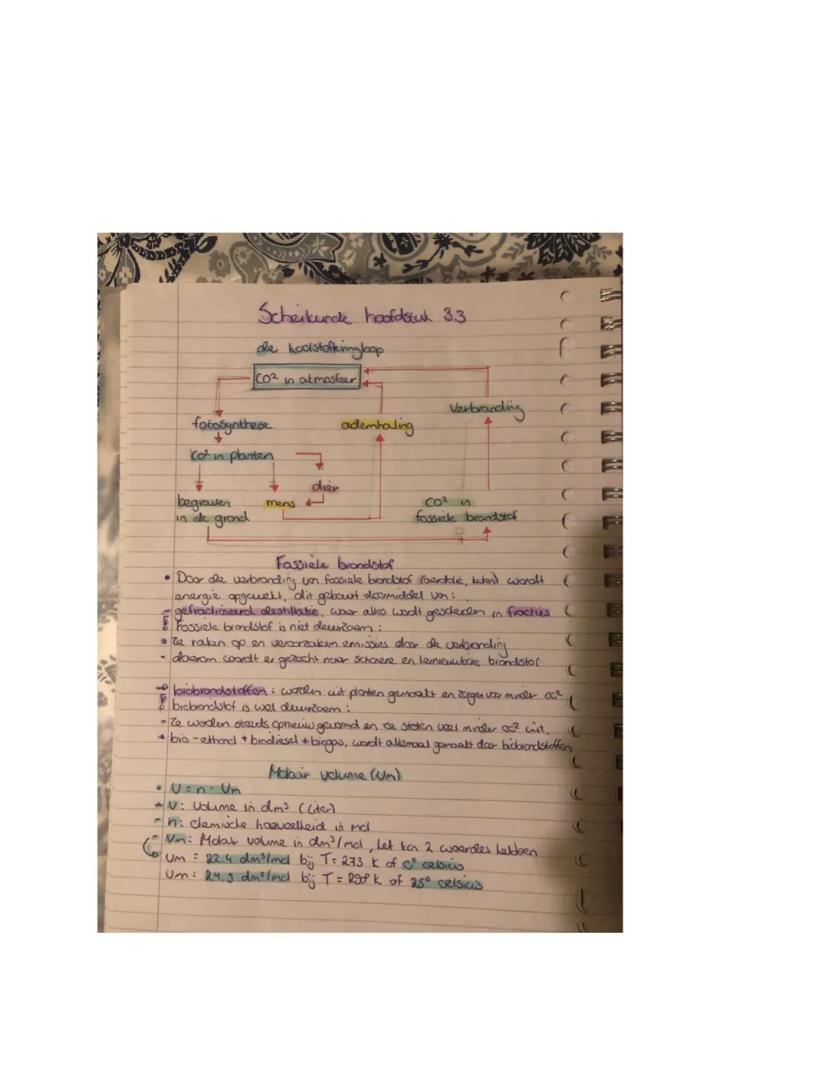 Scheikunde hoofdstuk 3.3
de koolstofkringloop
CO² in atmosfeer
Verbranding
fotosynthese
ademhaling
CO² in planten
dier
begraven
in de grond
mens
CO² in
fossiele brandstof
Fossiele brandstof
• Door de verbranding van fossiele brandstof (aardolie, kolen) wordt
energie opgewekt, dit gebeurt doormiddel van:
- gefractioneerd destillatie, waar alles wordt gescheiden in fracties
Fossiele brandstof is niet duurzaam:
• Ze raken op en veroorzaken emissies door de verbranding
- daarom wordt er gezocht naar schone en hernieuwbare brandstof
biobrandstoffen: worden uit planten gemaakt en zorgen voor minder CO²
biobrandstof is wel duurzaam:
- Ze worden steeds opnieuw gevormd en ze stoten veel minder CO² uit.
• bio-ethanol + biodiesel + biogas, wordt allemaal gemaakt door biobrandstoffen
Molair volume (Vm)
• V = n · Vm
- V: Volume in dm³ (liter)
- n: chemische hoeveelheid in mol
- Vm: Molair volume in dm³/mol, het kan 2 waardes hebben
Vm = 22.4 dm³/mol bij T = 273 K of 0° celsius
Vm = 24.5 dm³/mol bij T = 298 K of 25° celsius